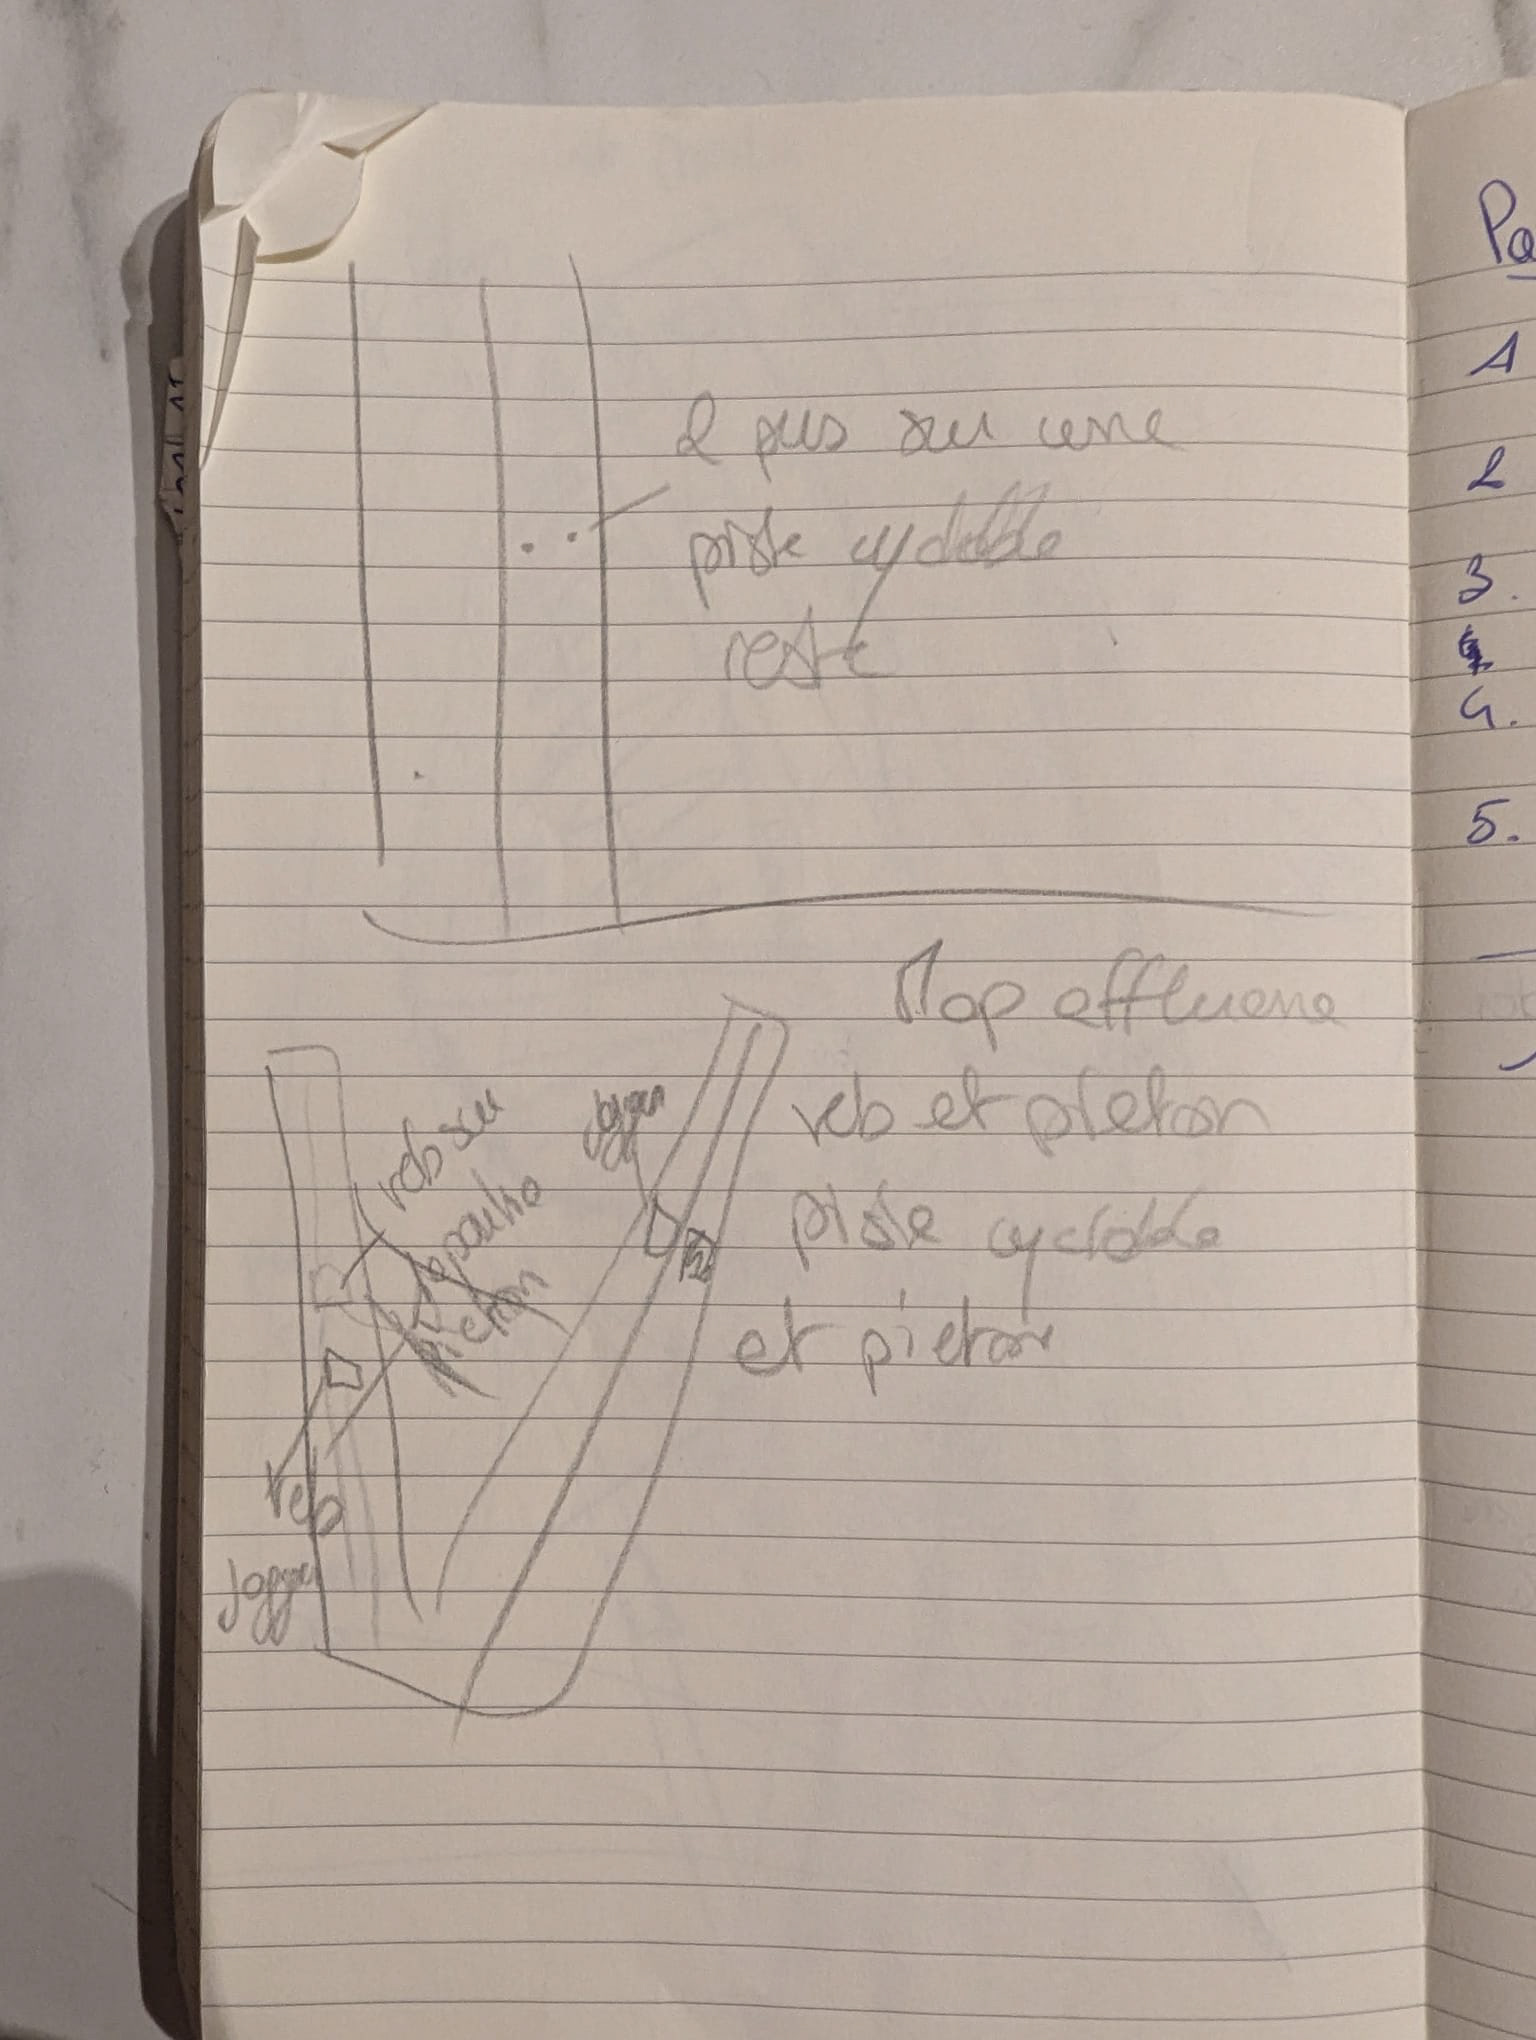 2 pus sur une
piste cyclable
reste
Map affluence
velo et pieton
piste cyclable
et pieton
velo sur
pieton
velo
Jogger
Jogger
Pa
1
2
3.
4.
5.